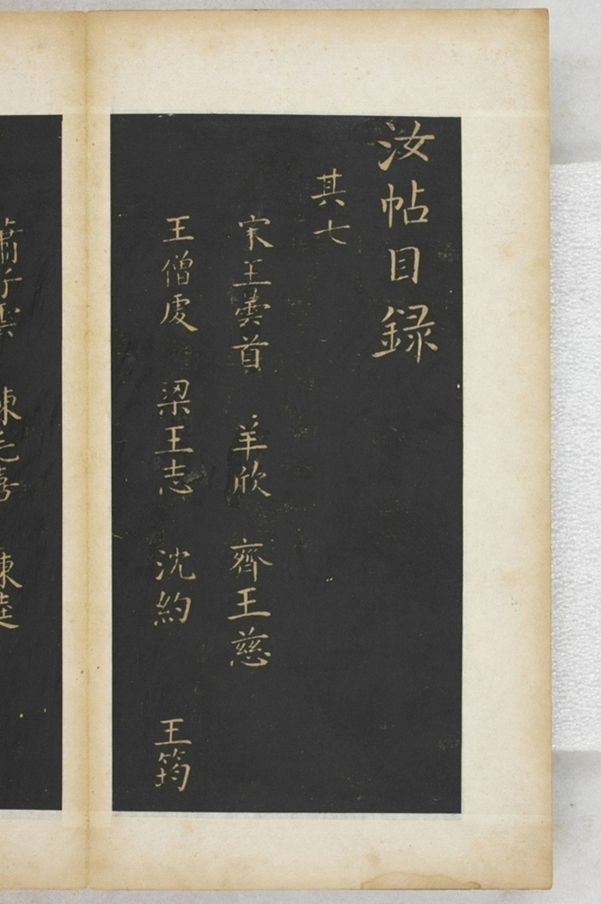 汝帖目録
其七
宋王曇首 羊欣 齊王慈
王僧虔 梁王志 沈約 王筠
蕭子雲 陳毛喜 陳逵